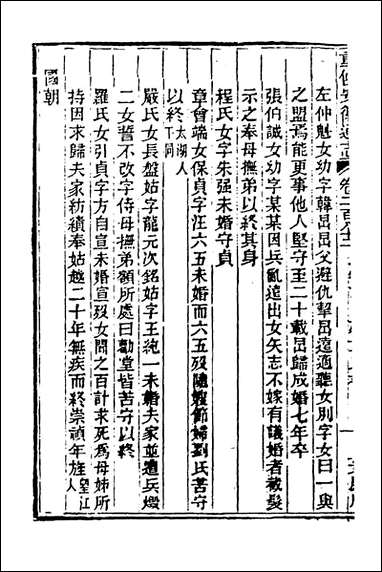 重修安徽通志 卷二百六十
左仲魁女幼字韓昺昺父避仇挈昺遠適聽女別字女曰一與
之盟焉能更事他人堅守至二十載昺歸成婚七年卒
張伯誠女幼字某某因兵亂遠出女矢志不嫁有議婚者截髮
示之奉母撫弟以終其身
程氏女字朱强未婚守貞
章會端女保貞字汪六五未婚而六五歿隨嫂節婦劉氏苦守
以終太湖人下同
嚴氏女長盤姑字龍元次銘姑字王純一未婚夫家並遭兵燬
二女誓不改字侍母撫弟額所處曰勵堂皆苦守以終
羅氏女引貞字方自宣未婚宣歿女聞之百計求死爲母姊所
持因求歸夫家紡績奉姑越二十年無疾而終崇禎年旌望江人
國朝